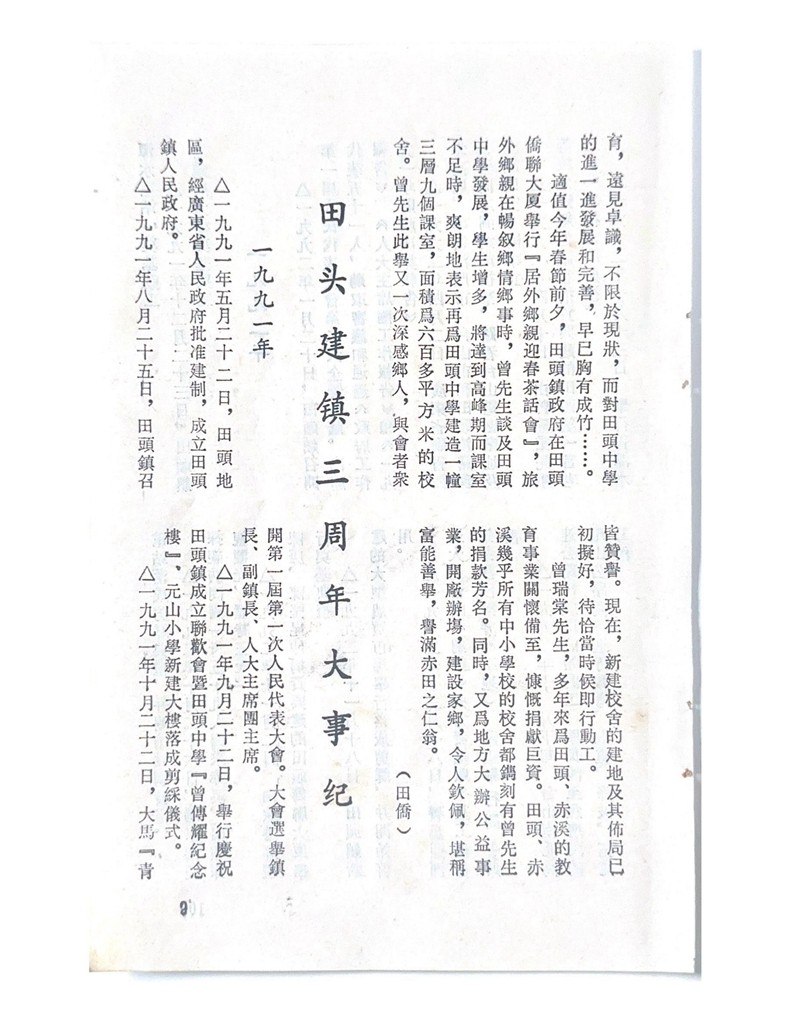 育，遠見卓識，不限於現狀，而對田頭中學
的進一進發展和完善，早已胸有成竹……。
適值今年春節前夕，田頭鎮政府在田頭
僑聯大厦舉行『居外鄉親迎春茶話會』，旅
外鄉親在暢叙鄉情鄉事時，曾先生談及田頭
中學發展，學生增多，將達到高峰期而課室
不足時，爽朗地表示再爲田頭中學建造一幢
三層九個課室，面積爲六百多平方米的校
舍。曾先生此舉又一次深感鄉人，與會者衆
皆贊譽。現在，新建校舍的建地及其佈局已
初擬好，待恰當時候即行動工。
曾瑞棠先生，多年來爲田頭、赤溪的教
育事業關懷備至，慷慨捐獻巨資。田頭、赤
溪幾乎所有中小學校的校舍都鐫刻有曾先生
的捐款芳名。同時，又爲地方大辦公益事
業，開廠辦塲，建設家鄉，令人欽佩，堪稱
富能善舉，譽滿赤田之仁翁。
（田僑）
田头建镇三周年大事纪
一九九一年
△一九九一年五月二十二日，田頭地
區，經廣東省人民政府批准建制，成立田頭
鎮人民政府。
△一九九一年八月二十五日，田頭鎮召
開第一屆第一次人民代表大會。大會選舉鎮
長、副鎮長、人大主席團主席。
△一九九一年九月二十二日，舉行慶祝
田頭鎮成立聯歡會暨田頭中學『曾傳耀紀念
樓』、元山小學新建大樓落成剪綵儀式。
△一九九一年十月二十二日，大馬『青